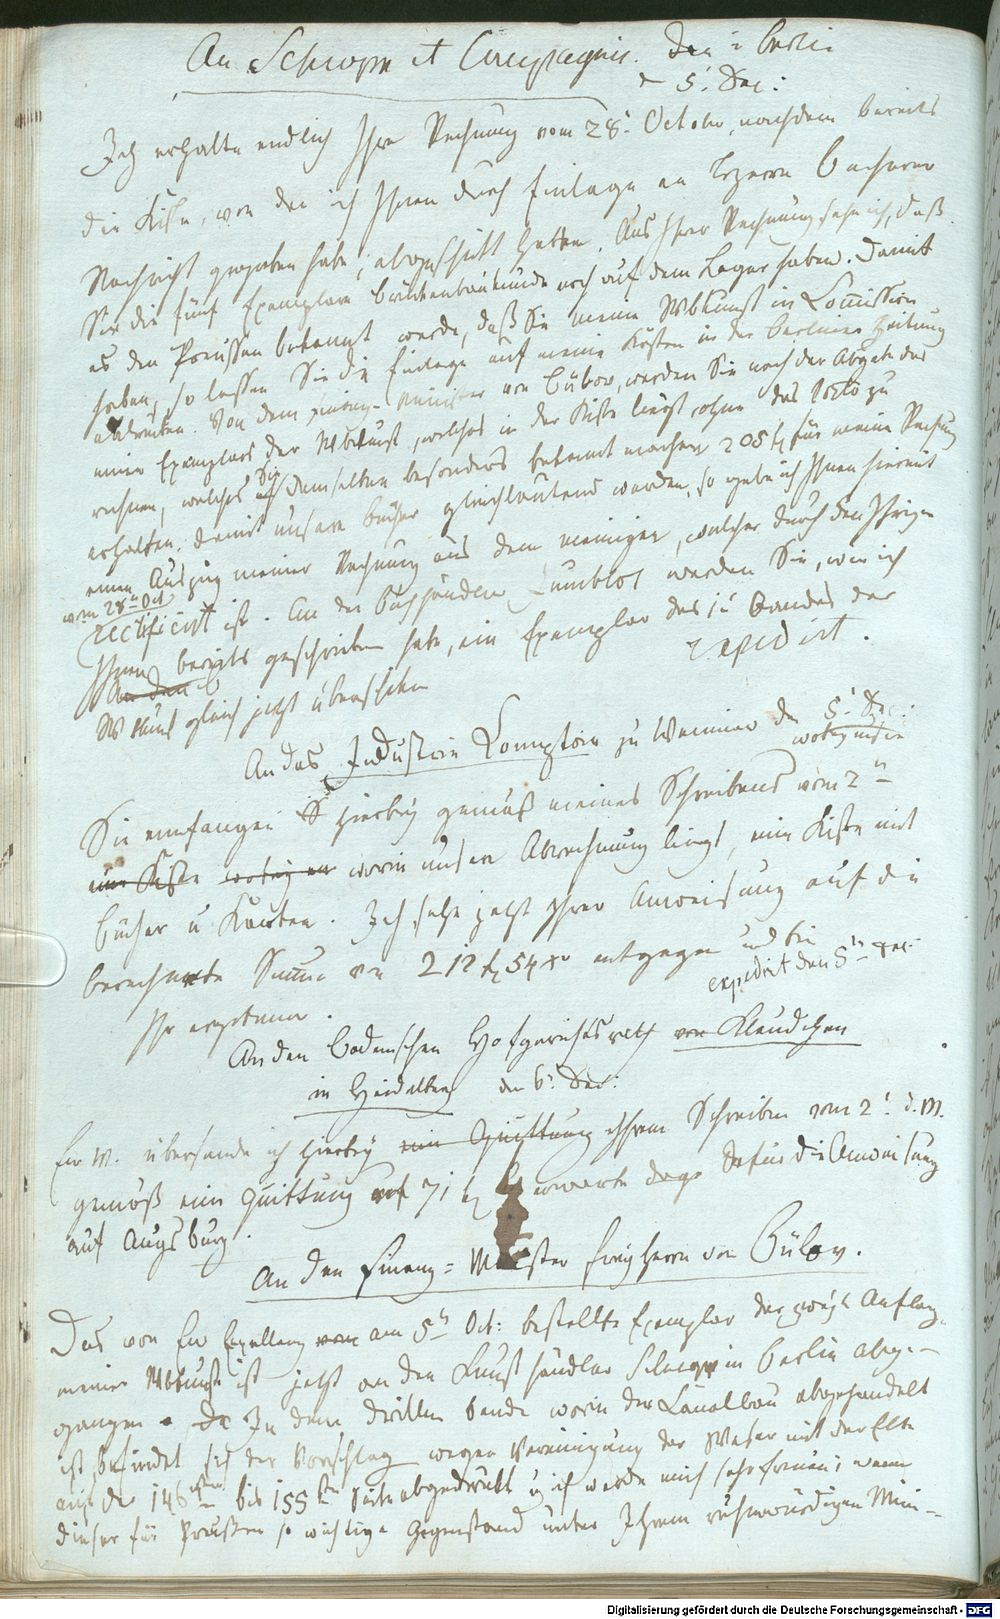 An Schropp et Compagnie. den in Berlin
5' Dec:
Ich erhalte endlich Ihre Rechnung vom 28' October, nachdem bereits
die Kiste, von der ich Ihnen durch Einlage an Herrn
Nachricht gegeben habe, abgeschikt hatte. Aus Ihrer Rechnung sehe ich, daß
Sie die fünf Exemplare Brükenbaukunde noch auf dem Lager haben. Damit
es den Preussen bekannt werde, daß Sie meine Wbkunst in Comission
haben, so lassen Sie die Einlage auf meine Kosten in der Berliner Zeitung
abdruken. Von dem Finanz-Minister von Bülow, werden Sie nach der Abgabe des
einen Exemplars der Wbkunst, welches in der Kiste liegt, ohne das Porto zu
rechnen, welches Sie demselben besonders bekannt machen 205 f für meine Rechnung
erhalten. Damit unsere Bücher gleichlautend werden, so gebe ich Ihnen hiermit
einen Auszug meiner Rechnung aus dem meinigen, welcher durch den Ihrigen
vom 28n Oct
rectificirt ist. An der Buchhändler werden Sie, wie ich
Ihnen bereits geschrieben habe, ein Exemplar des 1' Bandes der
Wbkunst gleich jetzt überschiken
expedirt.
An das Industrie Komptoir zu Weimar den 5' Dec:
Sie empfangen hierbey gemäß meines Schreibens vom 2n
eine Kiste worin unsere Abrechnung liegt, eine Kiste mit
Bücher u Karten. Ich sehe jetzt Ihrer Anweisung auf die
berechnete Summe von 212 f 54 xr entgegen und bin
expedirt den 5n Dec
Ihr ergebener.
An den Badenschen Hofgerichtsrath von
in Heidelberg den 6' Dec:
Ew W. übersende ich hierbey eine Quittung Ihrem Schreiben vom 2' d. M.
gemäß eine Quittung auf 71 f erwarte dafür die Anweisung
auf Augsburg.
An den Finanz-Minister Freyherrn von Bülow.
Das von Ew Exellenz am 5n Oct: bestellte Exemplar der zweyte Auflage
meiner Wbkunst ist jetzt an den Kunsthändler Schropp in Berlin abge-
gangen. In dem dritten Bande worin der Canalbau abgehandelt
ist, befindet sich der Vorschlag wegen Vereinigung der Weser mit der Elbe
auf der 146sten bis 155ten Seite abgedrukt u ich werde mich sehr freuen, wenn
dieser für Preußen so wichtige Gegenstand unter Ihrem ruhmwürdigen Mini-
Digitalisierung gefördert durch die Deutsche Forschungsgemeinschaft - DFG